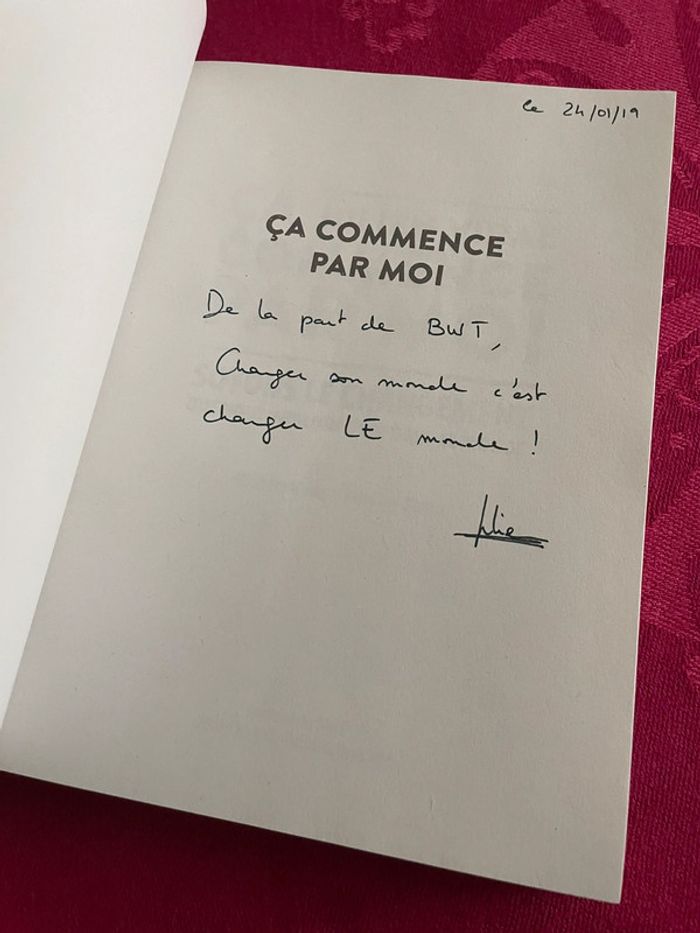 le 24/01/19
ÇA COMMENCE
PAR MOI
De la part de BWT,
Changer son monde c'est
changer LE monde !
Julie